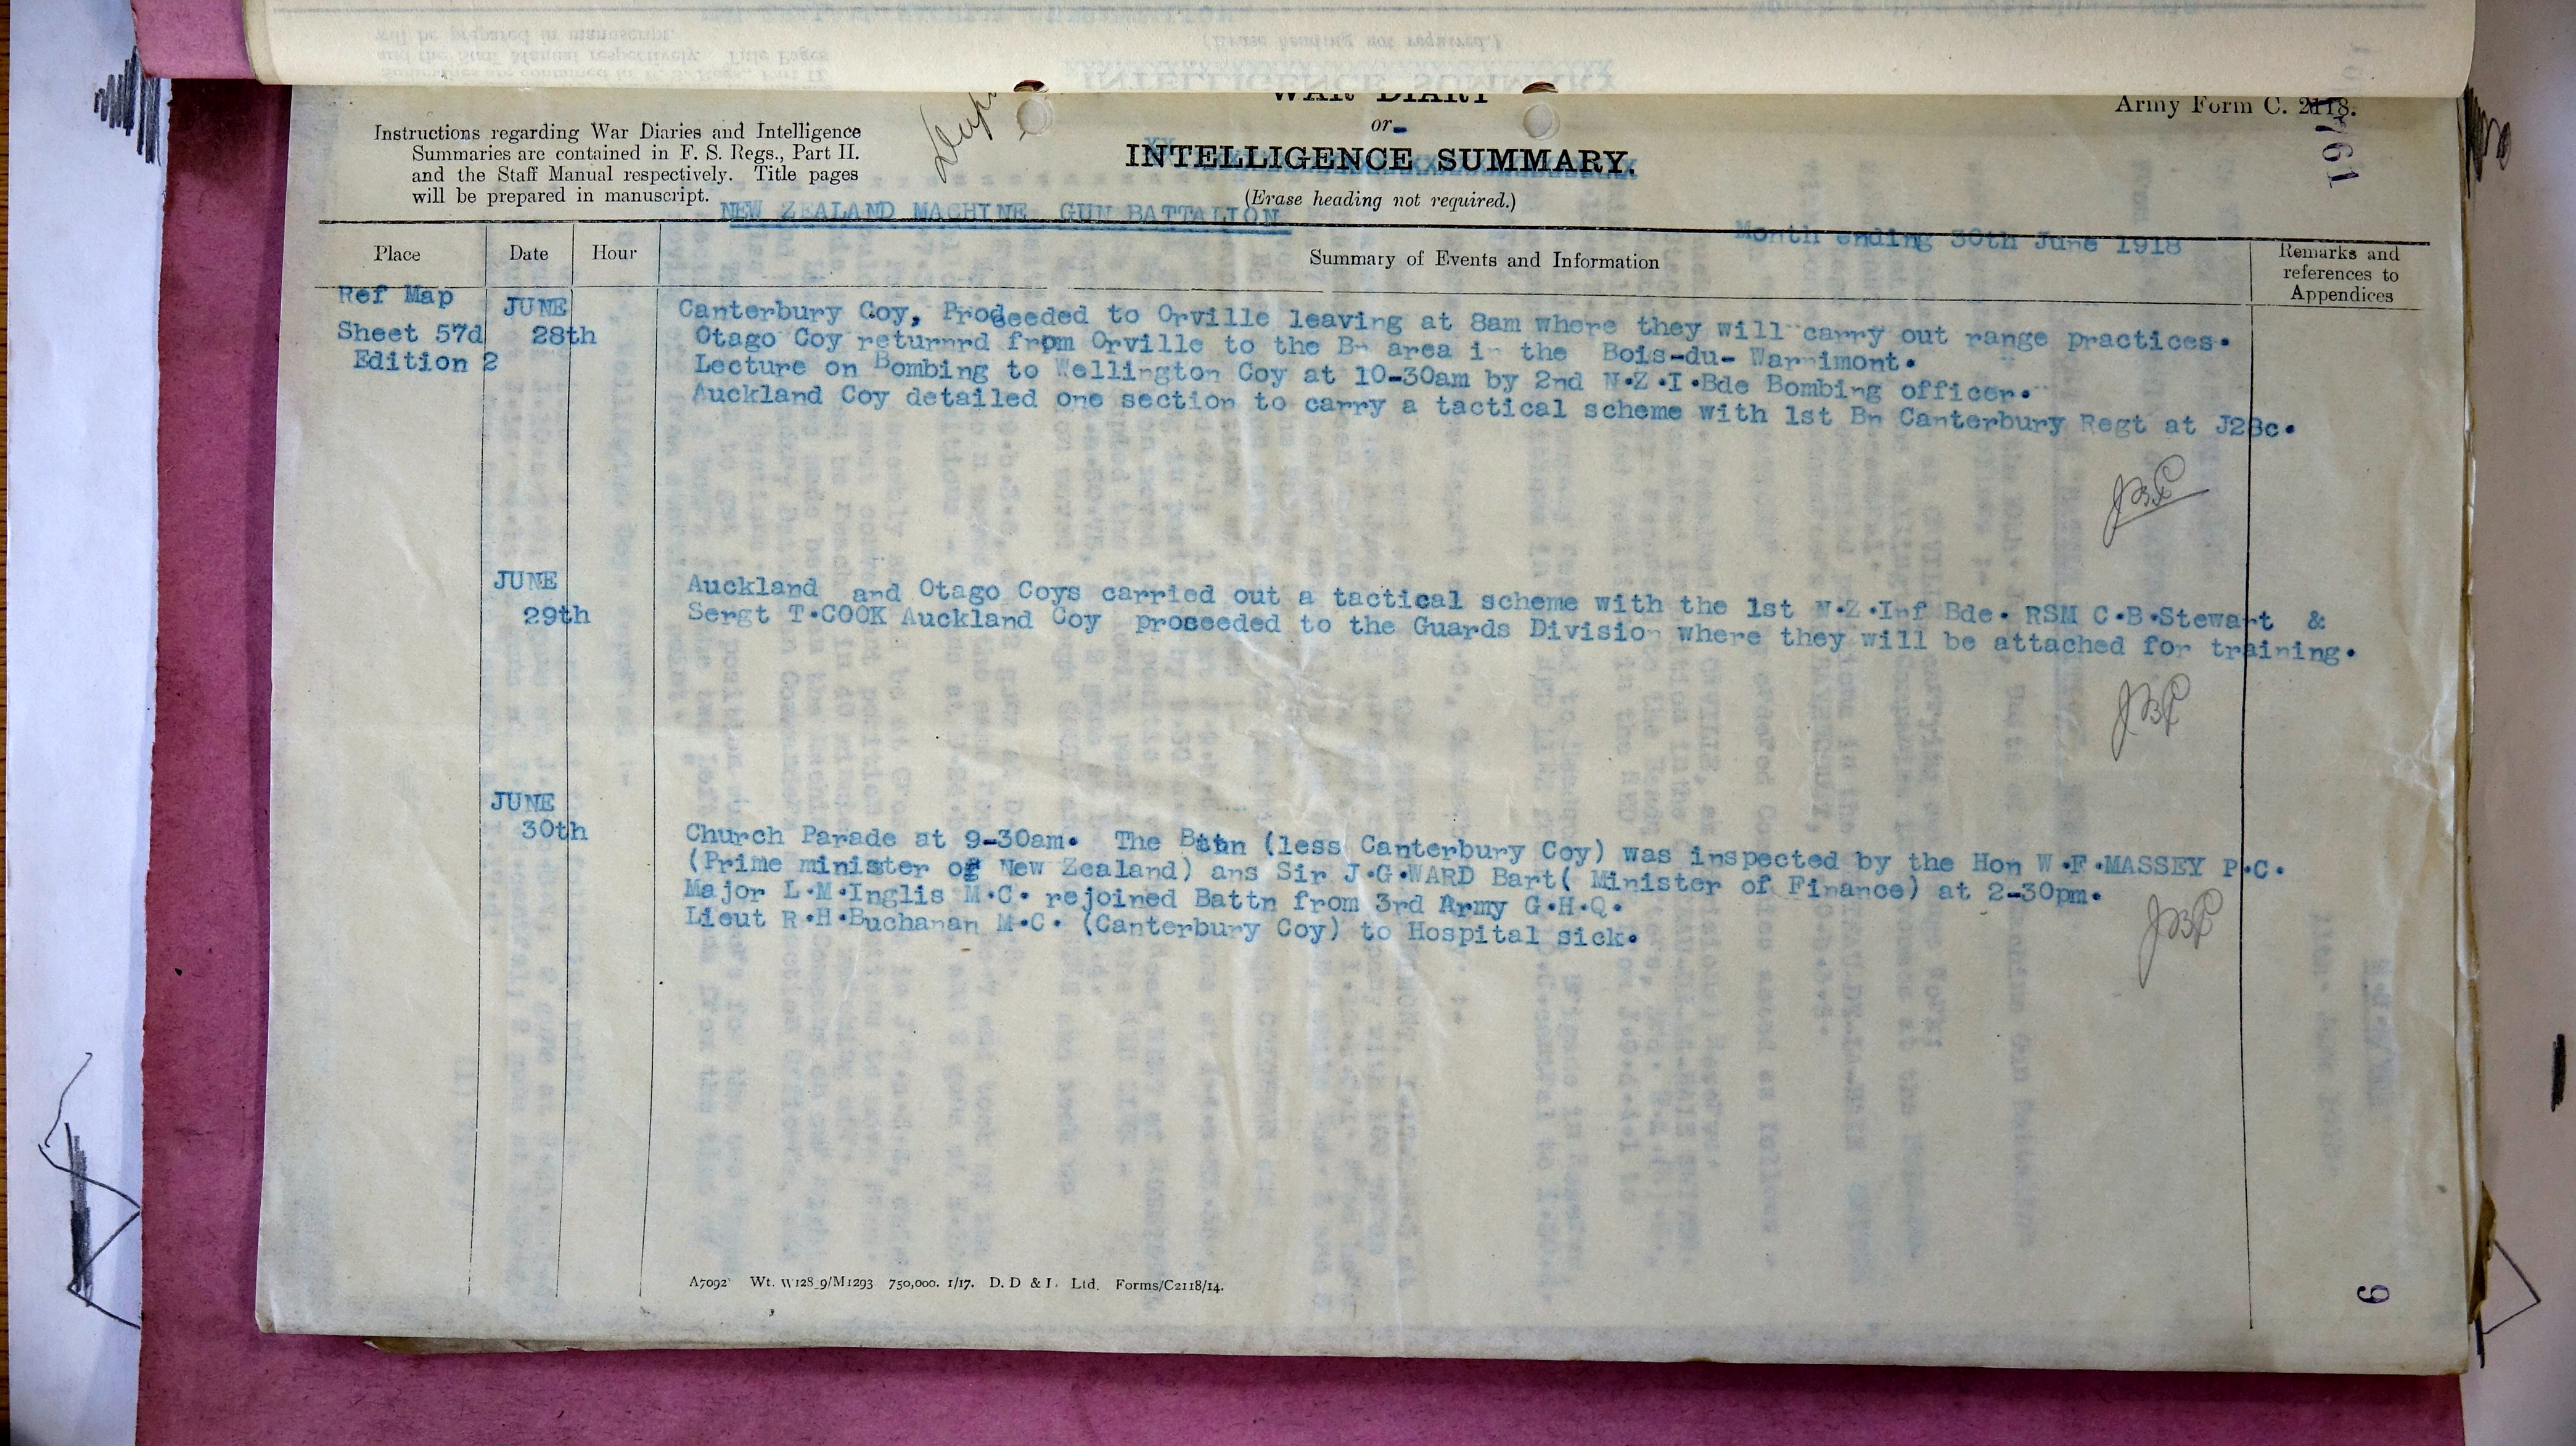 WAR DIARY
Army Form C. 2118.
or
Instructions regarding War Diaries and Intelligence
Summaries are contained in F. S. Regs., Part II.
and the Staff Manual respectively. Title pages
will be prepared in manuscript.
INTELLIGENCE SUMMARY.
(Erase heading not required.)
761
NEW ZEALAND MACHINE GUN BATTALION
Month ending 30th June 1918
Place Date Hour Summary of Events and Information Remarks and references to Appendices
Ref Map
Sheet 57d
Edition 2
JUNE
28th
Canterbury Coy, Proceeded to Orville leaving at 8am where they will carry out range practices.
Otago Coy returnrd from Orville to the Bn area in the Bois-du- Warnimont.
Lecture on Bombing to Wellington Coy at 10-30am by 2nd N.Z.I.Bde Bombing officer.
Auckland Coy detailed one section to carry a tactical scheme with 1st Bn Canterbury Regt at J28c.
JUNE
29th
Auckland and Otago Coys carried out a tactical scheme with the 1st N.Z.Inf Bde. RSM C.B.Stewart &
Sergt T.COOK Auckland Coy proseeded to the Guards Division where they will be attached for training.
JUNE
30th
Church Parade at 9-30am. The Battn (less Canterbury Coy) was inspected by the Hon W.F.MASSEY P.C.
(Prime minister of New Zealand) ans Sir J.G.WARD Bart( Minister of Finance) at 2-30pm.
Major L.M.Inglis M.C. rejoined Battn from 3rd Army G.H.Q.
Lieut R.H.Buchanan M.C. (Canterbury Coy) to Hospital sick.
A7092 Wt. W128 9/M1293 750,000. 1/17. D. D & L. Ltd. Forms/C2118/14.
9